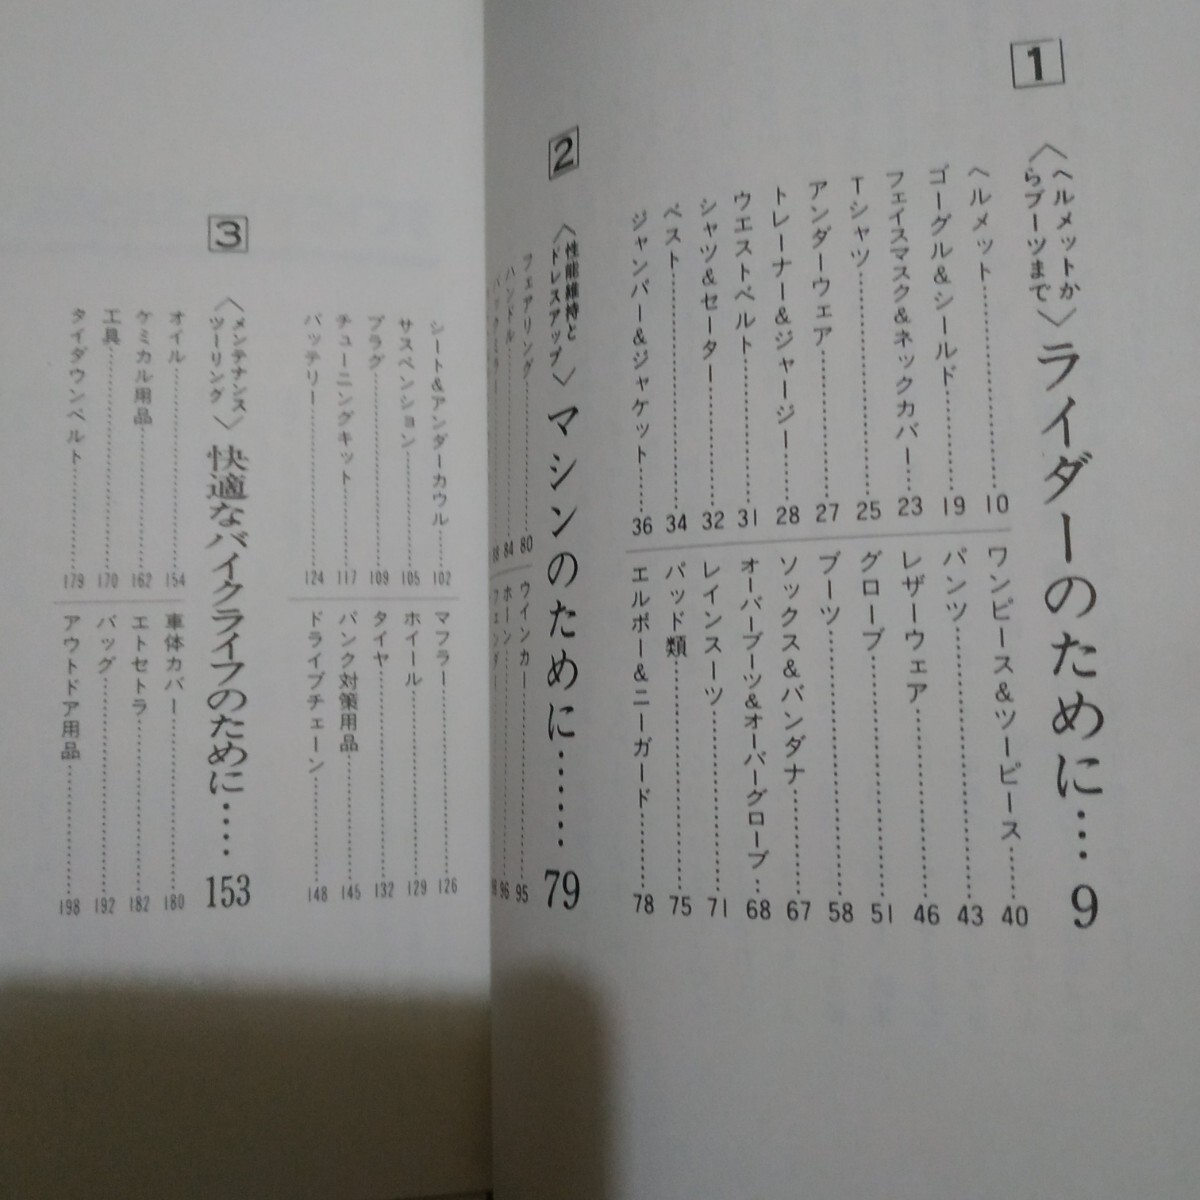 1
〈ヘルメットからブーツまで〉ライダーのために…9
ヘルメット…………10
ゴーグル&シールド…………19
フェイスマスク&ネックカバー…………23
Tシャツ…………25
アンダーウェア…………27
トレーナー&ジャージー…………28
ウエストベルト…………31
シャツ&セーター…………32
ベスト…………34
ジャンパー&ジャケット…………36
ワンピース&ツーピース…………40
パンツ…………43
レザーウェア…………46
グローブ…………51
ブーツ…………58
ソックス&バンダナ…………67
オーバーブーツ&オーバーグローブ…68
レインスーツ…………71
パッド類…………75
エルボー&ニーガード…………78
2
〈性能維持とドレスアップ〉マシンのために……79
フェアリング…………80
ハンドル…………84
ウインカー…………95
ホーン…………96
フェンダー
シート&アンダーカウル…………102
サスペンション…………105
プラグ…………109
チューニングキット…………117
バッテリー…………124
マフラー…………126
ホイール…………129
タイヤ…………132
パンク対策用品…………145
ドライブチェーン…………148
3
〈メンテナンスツーリング〉快適なバイクライフのために……153
オイル…………154
ケミカル用品…………162
工具…………170
タイダウンベルト…………179
車体カバー…………180
エトセトラ…………182
バッグ…………192
アウトドア用品…………198